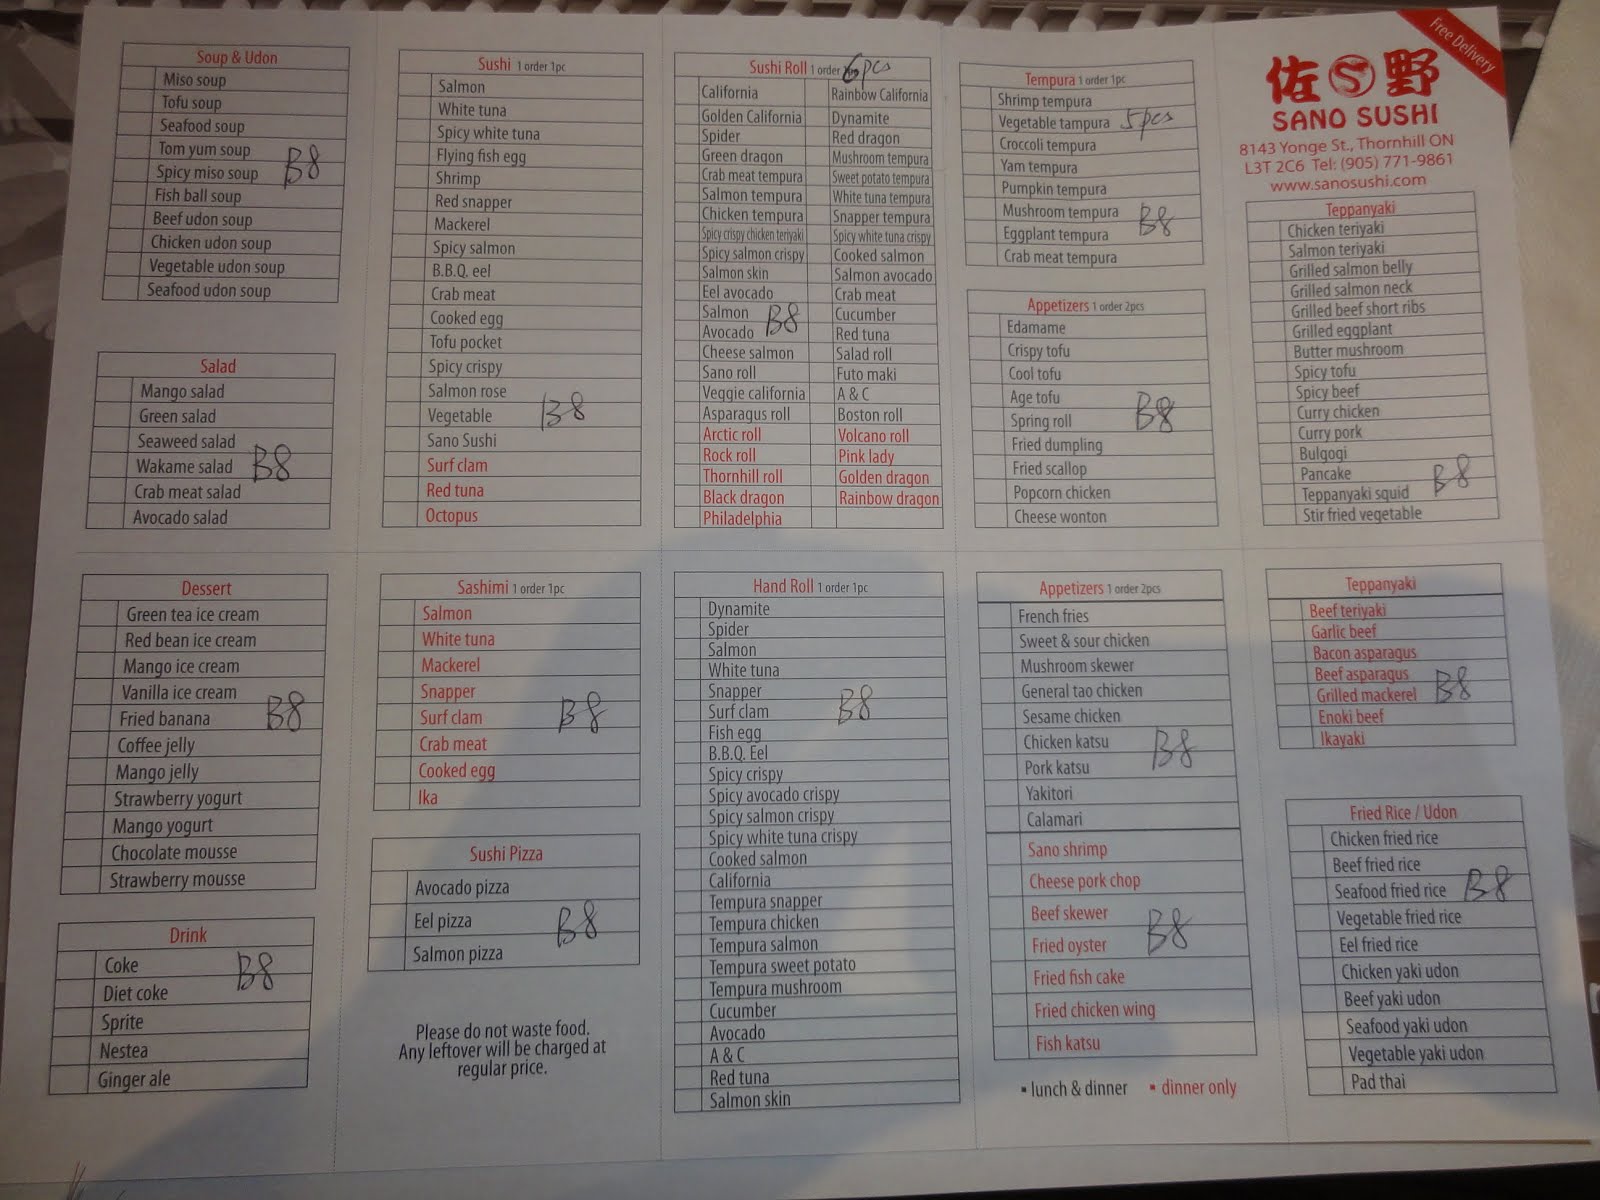 Soup & Udon
Miso soup
Tofu soup
Seafood soup
Tom yum soup
Spicy miso soup
B8
Fish ball soup
Beef udon soup
Chicken udon soup
Vegetable udon soup
Seafood udon soup
Salad
Mango salad
Green salad
Seaweed salad
Wakame salad
B8
Crab meat salad
Avocado salad
Sushi 1 order 1pc
Salmon
White tuna
Spicy white tuna
Flying fish egg
Shrimp
Red snapper
Mackerel
Spicy salmon
B.B.Q. eel
Crab meat
Cooked egg
Tofu pocket
Spicy crispy
Salmon rose
Vegetable
B8
Sano Sushi
Surf clam
Red tuna
Octopus
Sushi Roll 1 order 6pcs
California
Rainbow California
Golden California
Dynamite
Spider
Red dragon
Green dragon
Mushroom tempura
Crab meat tempura
Sweet potato tempura
Salmon tempura
White tuna tempura
Chicken tempura
Snapper tempura
Spicy crispy chicken teriyaki
Spicy white tuna crispy
Spicy salmon crispy
Cooked salmon
Salmon skin
Salmon avocado
Eel avocado
Crab meat
Salmon
B8
Cucumber
Avocado
Red tuna
Cheese salmon
Salad roll
Sano roll
Futo maki
Veggie california
A & C
Asparagus roll
Boston roll
Arctic roll
Volcano roll
Rock roll
Pink lady
Thornhill roll
Golden dragon
Black dragon
Rainbow dragon
Philadelphia
Tempura 1 order 1pc
Shrimp tempura
Vegetable tampura 5pcs
Croccoli tempura
Yam tempura
Pumpkin tempura
Mushroom tempura
B8
Eggplant tempura
Crab meat tempura
Appetizers 1 order 2pcs
Edamame
Crispy tofu
Cool tofu
Age tofu
Spring roll
B8
Fried dumpling
Fried scallop
Popcorn chicken
Cheese wonton
Free Delivery
佐 S 野
SANO SUSHI
8143 Yonge St., Thornhill ON
L3T 2C6 Tel: (905) 771-9861
www.sanosushi.com
Teppanyaki
Chicken teriyaki
Salmon teriyaki
Grilled salmon belly
Grilled salmon neck
Grilled beef short ribs
Grilled eggplant
Butter mushroom
Spicy tofu
Spicy beef
Curry chicken
Curry pork
Bulgogi
Pancake
B8
Teppanyaki squid
Stir fried vegetable
Dessert
Green tea ice cream
Red bean ice cream
Mango ice cream
Vanilla ice cream
Fried banana
B8
Coffee jelly
Mango jelly
Strawberry yogurt
Mango yogurt
Chocolate mousse
Strawberry mousse
Drink
Coke
B8
Diet coke
Sprite
Nestea
Ginger ale
Sashimi 1 order 1pc
Salmon
White tuna
Mackerel
Snapper
Surf clam
B8
Crab meat
Cooked egg
Ika
Sushi Pizza
Avocado pizza
Eel pizza
B8
Salmon pizza
Please do not waste food.
Any leftover will be charged at
regular price.
Hand Roll 1 order 1pc
Dynamite
Spider
Salmon
White tuna
Snapper
Surf clam
B8
Fish egg
B.B.Q. Eel
Spicy crispy
Spicy avocado crispy
Spicy salmon crispy
Spicy white tuna crispy
Cooked salmon
California
Tempura snapper
Tempura chicken
Tempura salmon
Tempura sweet potato
Tempura mushroom
Cucumber
Avocado
A & C
Red tuna
Salmon skin
Appetizers 1 order 2pcs
French fries
Sweet & sour chicken
Mushroom skewer
General tao chicken
Sesame chicken
Chicken katsu
B8
Pork katsu
Yakitori
Calamari
Sano shrimp
Cheese pork chop
Beef skewer
Fried oyster
B8
Fried fish cake
Fried chicken wing
Fish katsu
▪ lunch & dinner ▪ dinner only
Teppanyaki
Beef teriyaki
Garlic beef
Bacon asparagus
Beef asparagus
Grilled mackerel
B8
Enoki beef
Ikayaki
Fried Rice / Udon
Chicken fried rice
Beef fried rice
Seafood fried rice
B8
Vegetable fried rice
Eel fried rice
Chicken yaki udon
Beef yaki udon
Seafood yaki udon
Vegetable yaki udon
Pad thai